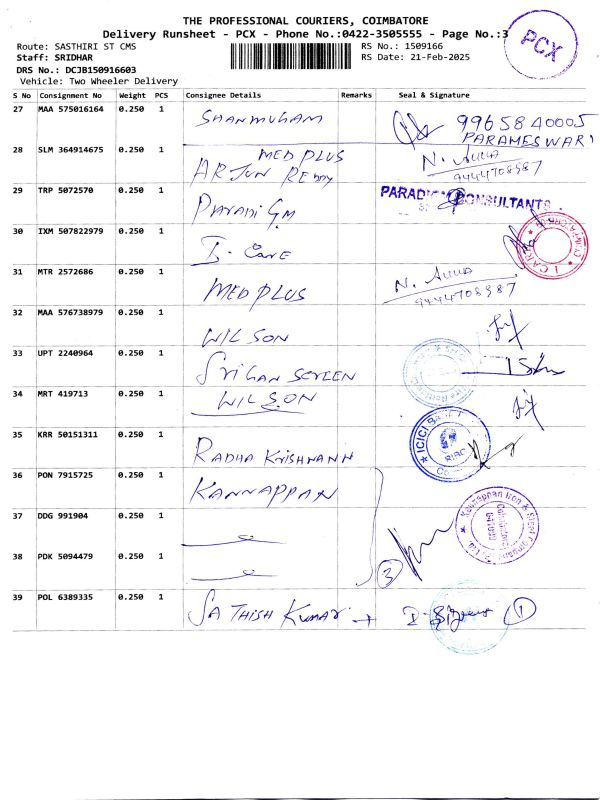 THE PROFESSIONAL COURIERS, COIMBATORE
Delivery Runsheet - PCX - Phone No.:0422-3505555 - Page No.:3
PCX
Route: SASTHIRI ST CMS
RS No.: 1509166
Staff: SRIDHAR
RS Date: 21-Feb-2025
DRS No.: DCJB150916603
Vehicle: Two Wheeler Delivery
S No Consignment No Weight PCS Consignee Details Remarks Seal & Signature
27 MAA 575016164 0.250 1 SHANMUGAM 9965840005
PARAMESWARI
28 SLM 364914675 0.250 1 MEDPLUS
ARJUN REDDY
9444708987
29 TRP 5072570 0.250 1 PARADIGM CONSULTANTS
30 IXM 507822979 0.250 1 I-CARE
31 MTR 2572686 0.250 1 MEDPLUS
9444708987
32 MAA 576738979 0.250 1 WILSON
33 UPT 2240964 0.250 1 SRIGAN SCREEN
34 MRT 419713 0.250 1 WILSON
35 KRR 50151311 0.250 1 RADHA KRISHNANN ICICI
36 PON 7915725 0.250 1 KANNAPPAN
Kannappan Iron & Steel Company
37 DDG 991904 0.250 1
38 PDK 5094479 0.250 1
3
39 POL 6389335 0.250 1 SATHISH KUMAR 1